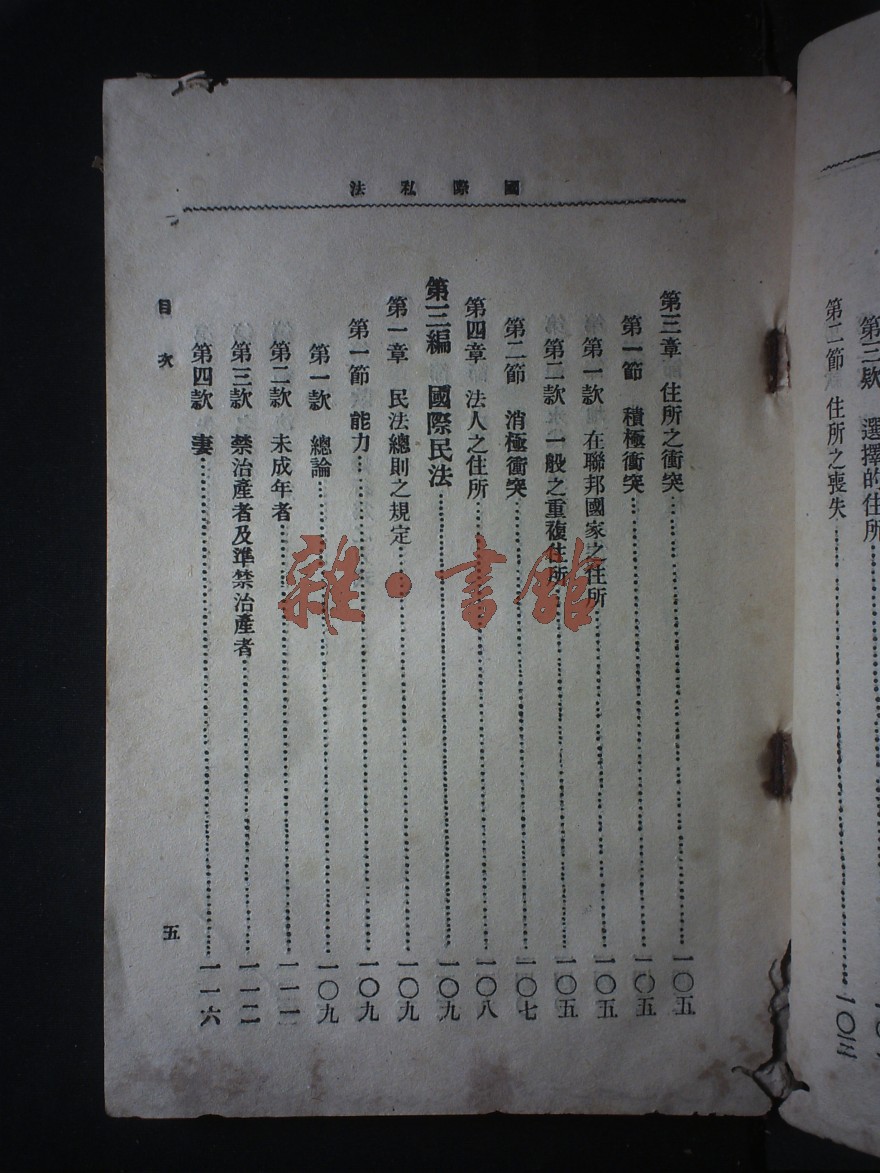 第三欵 選擇的住所
第二節 住所之喪失 一〇三
國際私法
第三章 住所之衝突 一〇五
第一節 積極衝突 一〇五
第一款 在聯邦國家之住所 一〇五
第二款 一般之重複住所 一〇五
第二節 消極衝突 一〇七
第四章 法人之住所 一〇八
第三編 國際民法 一〇九
第一章 民法總則之規定 一〇九
第一節 能力 一〇九
第一款 總論 一〇九
第二款 未成年者 一一一
第三款 禁治產者及準禁治產者 一一二
第四款 妻 一一六
目次
五
雜·書館